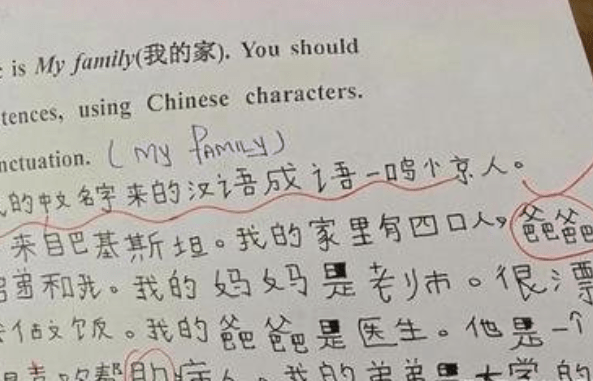 is My family(我的家). You should
tences, using Chinese characters.
nctuation. (MY FAMILY)
的中文名字来的汉语成语一鸣惊人。
来自巴基斯坦。我的家里有四口人,爸爸
弟和我。我的妈妈是老师。很漂
饭。我的爸爸是医生。他是一个
帮助病人。我的弟弟是大学的